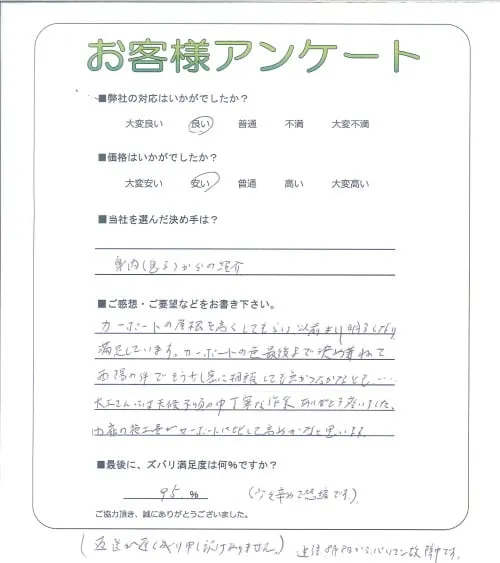 お客様アンケート
■弊社の対応はいかがでしたか？
大変良い 良い 普通 不満 大変不満
■価格はいかがでしたか？
大変安い 安い 普通 高い 大変高い
■当社を選んだ決め手は？
身内(息子)からの紹介
■ご感想・ご要望などをお書き下さい。
カーポートの屋根を高くしてもらい以前より明るくなり
満足しています。カーポートの色最後まで決め兼ねて
西陽の件でもう少し息に相談しても良かったかなとも、…
大工さんには天候不順の中丁寧な作業ありがとう座いました。
の施工費がカーポートに比して高めかなと思います。
■最後に、ズバリ満足度は何%ですか？
95 %
です)
ご協力頂き、誠にありがとうございました。
(返送が遅く成り申し訳けありません。) からパソコン故障中です。